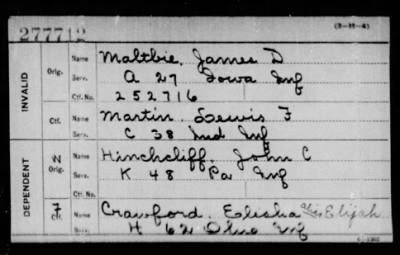 277712
(3-88-4)
INVALID
Orig.
Name Maltbie, James D
Serv. A 27 Iowa Inf
Ctf. No. 252716
Ctf.
Name Martin, Lewis F
Serv. C 38 Ind Inf
DEPENDENT
W
Orig.
Name Hinchcliff, John C
Serv. K 48 Pa Inf
7
Ctf.
Name Crawford, Elisha alias Elijah
Serv. H 62 Ohio Inf